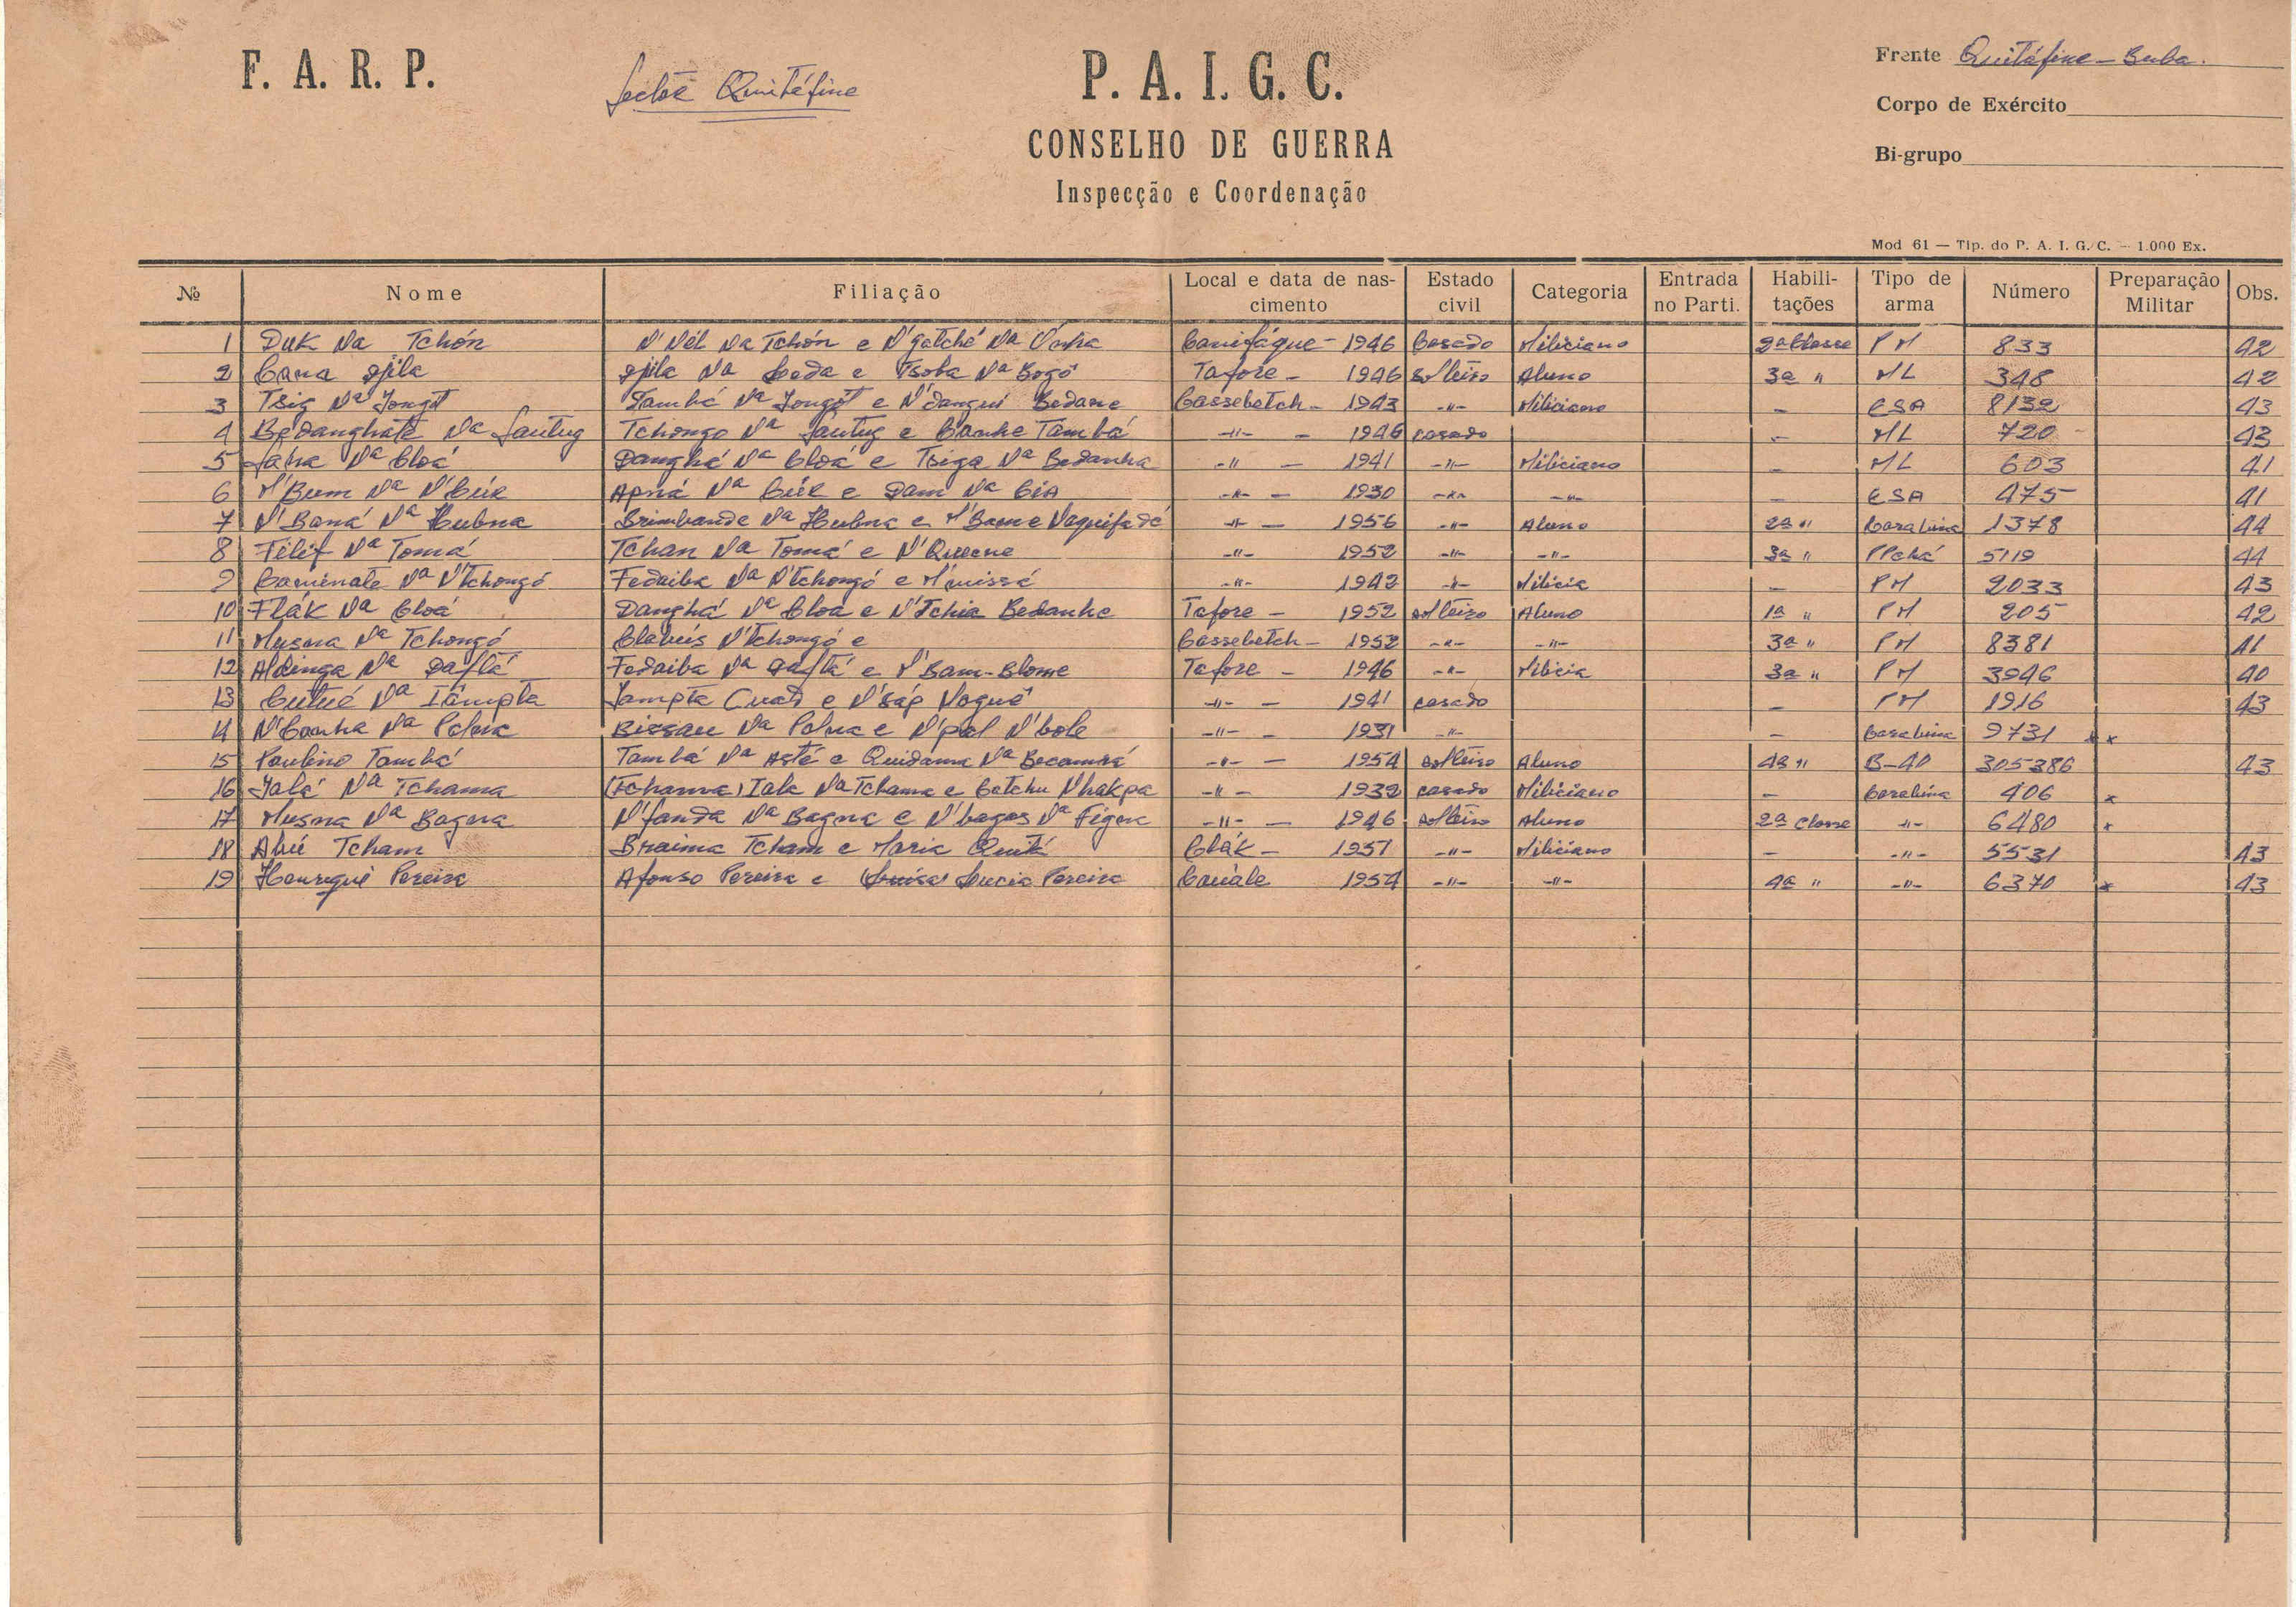 F. A. R. P.
Sector Quitáfine
P. A. I. G. C.
CONSELHO DE GUERRA
Inspecção e Coordenação
Frente Quitáfine - Buba.
Corpo de Exército
Bi-grupo
Mod 61 — Tip. do P. A. I. G. C. — 1.000 Ex.
№ Nome Filiação Local e data de nascimento Estado civil Categoria Entrada no Parti. Habilitações Tipo de arma Número Preparação Militar Obs.
1 Duk Na Tchón N'Nél Na Tchón e N'gatché Na 1946 Casado Miliciano 2ª Classe PM 833 42
2 Cana Djila Djila Na e Tsoba Na Bogó Tafore - 1946 Solteiro Aluno 3ª " ML 348 42
3 Tsig Na Tambá Na e N'dangui Bedane Cassebetch - 1943 -"- Miliciano - ESA 8132 43
4 Bedanghaté Na Santug Tchongo Na Santug e Canhe Tambá -"- - 1946 casado - ML 720 43
5 Na Cloá Danghá Na Cloá e Tsiga Na Bedanha -"- - 1941 -"- Miliciano - ML 603 41
6 M'Bum Na N'Cúk Apná Na Cúk e Dam Na -"- - 1930 -"- -"- - ESA 475 41
7 N'Baná Na Hubna Brimbande Na Hubna e M'Bam e -"- - 1956 -"- Aluno 2ª " Carabina 1378 44
8 Félif Na Tomá Tchan Na Tomá e N'Quene -"- 1952 -"- -"- 3ª " PPchá 5119 44
9 Caminate Na N'Tchongó Fedaiba Na N'tchongó e M'uissá -"- 1942 -"- Milicia - PM 2033 43
10 Flák Na Cloá Danghá Na Cloá e N'Tchia Bedanhe Tafore - 1952 solteiro Aluno 1ª " PM 205 42
11 Musna Na Tchongó N'tchongó e Cassebetch - 1952 -"- -"- 3ª " PM 8381 41
12 Aldinga Na Daftá Fedaiba Na Daftá e M'Bam-Blome Tafore - 1946 -"- Milicia 3ª " PM 3946 40
13 Na Iâmpta Iampta e N'sáp Nagué -"- - 1941 casado - PM 1916 43
14 N'Canha Na Palna Bissau Na Palna e N'pal N'bole -"- - 1931 -"- - Carabina 9731 x x
15 Paulino Tambá Tambá Na Asté e Quidama Na -"- - 1954 solteiro Aluno 4ª " B-40 305386 43
16 Ialá Na Tchama (Tchama) Iala Na Tchama e Catchu -"- - 1932 casado Miliciano - Carabina 406 x
17 Musna Na Bagna N'fanda Na Bagna e N'bagas Na -"- - 1946 solteiro Aluno 2ª Classe -"- 6480 x
18 Abú Tcham Braima Tcham e Maria Quitá Clák - 1951 -"- Miliciano - -"- 5531 43
19 Henrique Pereira Afonso Pereira e (Luisa) Lucia Pereira Cauále 1954 -"- -"- 4ª " -"- 6370 x 43